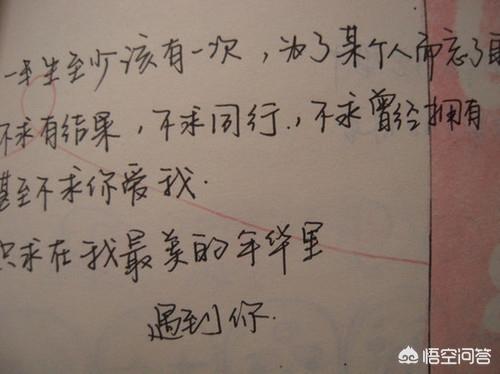 一生至少该有一次，为了某个人而忘了
不求有结果，不求同行，不求曾经拥有
甚至不求你爱我.
只求在我最美的年华里
遇到你.
悟空问答